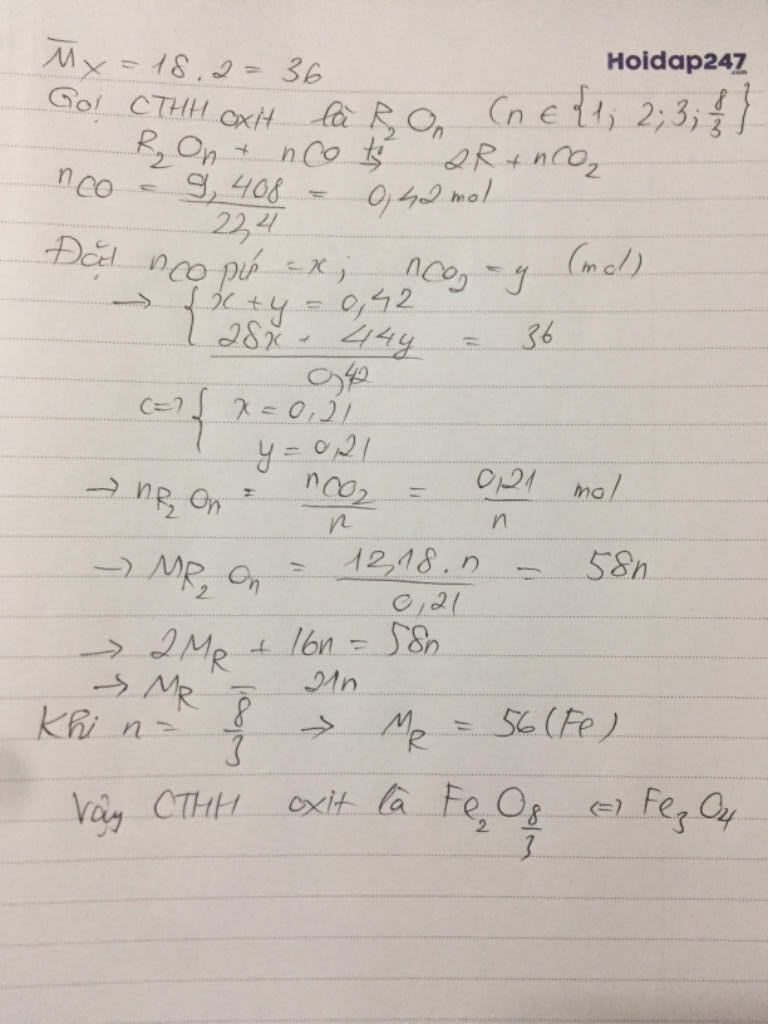 M̅x = 18.2 = 36
Hoidap247.com
Gọi CTHH oxit là R₂Oₙ (n ∈ {1; 2; 3; 8/3}
R₂Oₙ + nCO t° → 2R + nCO₂
nCO = 9,408/22,4 = 0,42 mol
Đặt nCO pứ = x; nCO₂ = y (mol)
→ { x + y = 0,42
(28x + 44y)/0,42 = 36
<=> { x = 0,21
y = 0,21
→ nR₂Oₙ = nCO₂/n = 0,21/n mol
→ MR₂Oₙ = 12,18.n/0,21 = 58n
→ 2MR + 16n = 58n
→ MR = 21n
Khi n = 8/3 → MR = 56 (Fe)
Vậy CTHH oxit là Fe₂O8/3 <=> Fe₃O₄